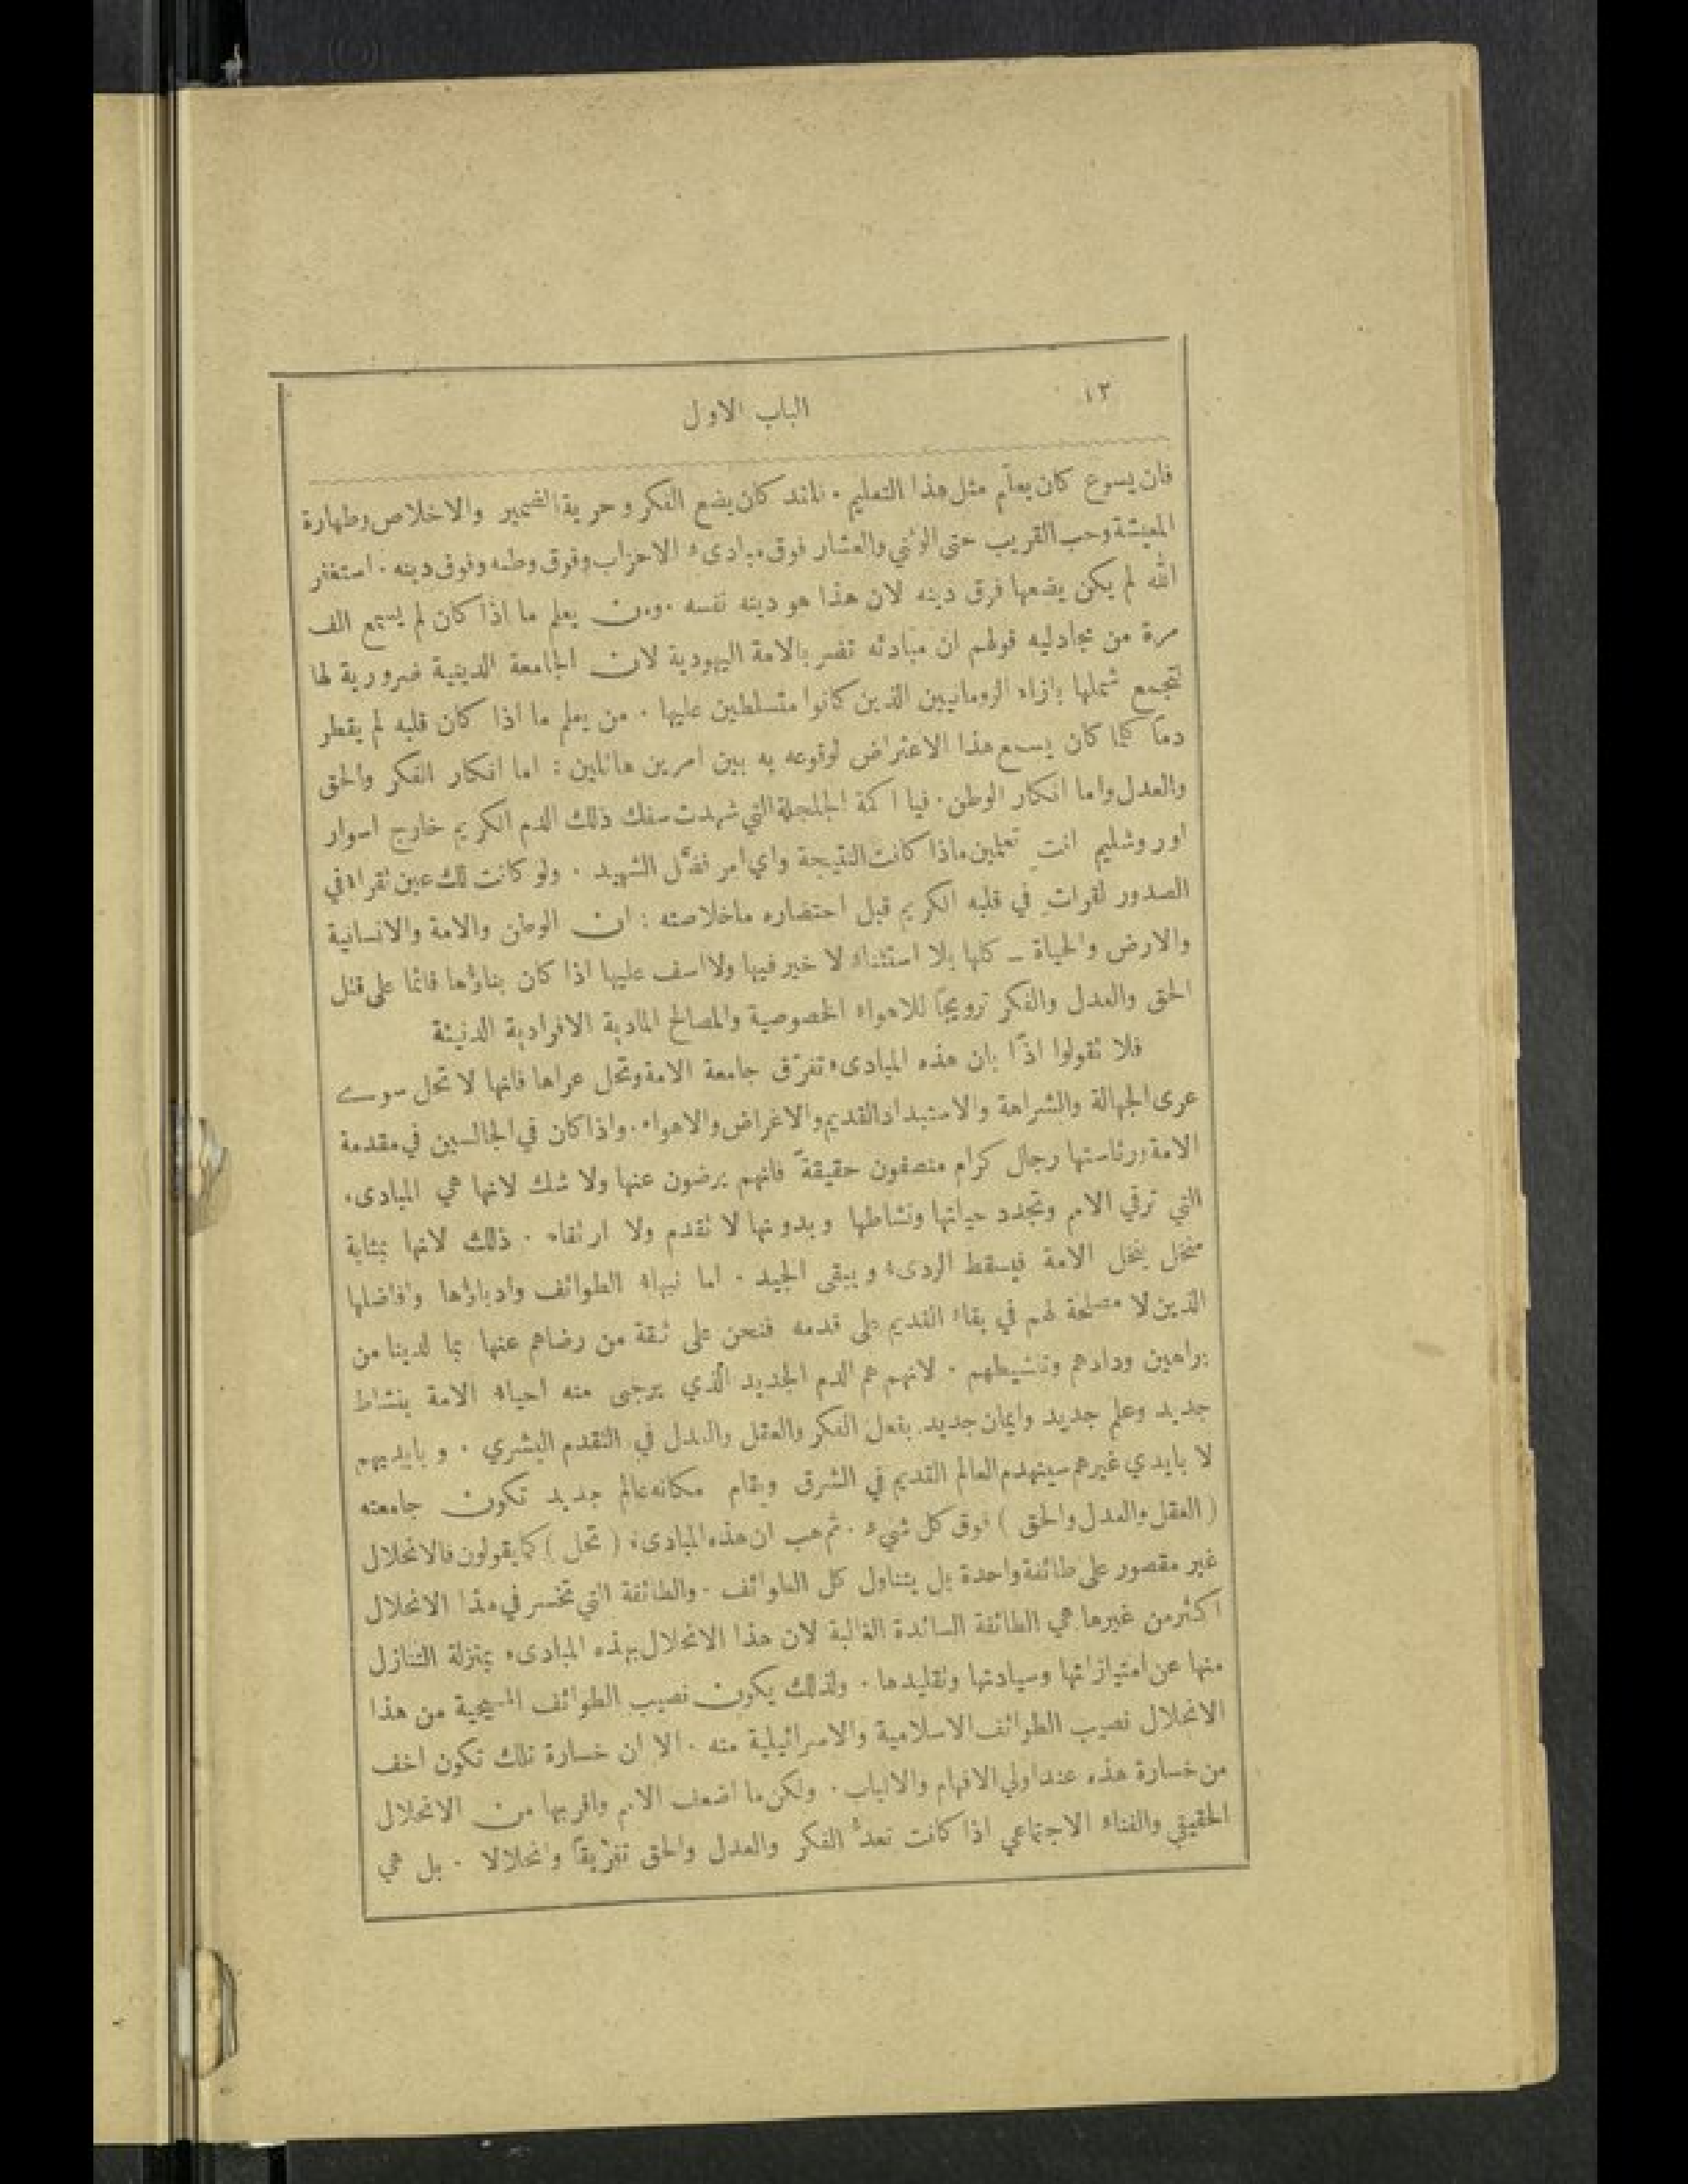 ١٢
الباب الاول
فان يسوع كان يعلّم مثل هذا التعليم . فلقد كان يضع الفكر وحرية الضمير والاخلاص وطهارة
المعيشة وحب القريب حتى الوثني والعشار فوق مبادىء الاحزاب وفوق وطنه وفوق دينه . استغفر
الله لم يكن يضعها فوق دينه لان هذا هو دينه نفسه . ومن يعلم ما اذا كان لم يسمع الف
مرة من مجادليه قولهم ان مبادئه تضر بالامة اليهودية لان الجامعة الدينية ضرورية لها
لتجمع شملها بازاء الرومانيين الذين كانوا متسلطين عليها . من يعلم ما اذا كان قلبه لم يقطر
دماً كلما كان يسمع هذا الاعتراض لوقوعه به بين امرين هائلين : اما انكار الفكر والحق
والعدل واما انكار الوطن . فيا اكمة الجلجلة التي شهدت سفك ذلك الدم الكريم خارج اسوار
اورشليم انتِ تعلمين ماذا كانت النتيجة واي امر فضّل الشهيد . ولو كانت لك عين نقرأ في
الصدور لقرأتِ في قلبه الكريم قبل احتضاره ما خلاصته : ان الوطن والامة والانسانية
والارض والحياة – كلها بلا استثناء لا خير فيها ولا اسف عليها اذا كان بناؤها قائما على قتل
الحق والعدل والفكر ترويجاً للاهواء الخصوصية والمصالح المادية الافرادية الدنيئة
فلا نقولوا اذاً بان هذه المبادىء تفرّق جامعة الامة وتحل عراها فانها لا تحل سوى
عرى الجهالة والشراهة والاستبداد القديم والاغراض والاهواء . واذا كان في الجالسين في مقدمة
الامة ورئاستها رجال كرام منصفون حقيقةً فانهم يرضون عنها ولا شك لانها هي المبادىء
التي ترقي الامم وتجدد حياتها ونشاطها وبدونها لا نقدم ولا ارتقاء . ذلك لانها بمثابة
منخل ينخل الامة فيسقط الردىء ويبقى الجيد . اما نبهاء الطوائف وادباؤها وافاضلها
الذين لا مصلحة لهم في بقاء القديم على قدمه فنحن على ثقة من رضاهم عنها بما لدينا من
براهين ودادهم وتنشيطهم . لانهم هم الدم الجديد الذي يرجى منه احياء الامة بنشاط
جديد وعلم جديد وايمان جديد بفعل الفكر والعقل والعدل في التقدم البشري . وبايديهم
لا بايدي غيرهم سينهدم العالم القديم في الشرق ويقام مكانه عالم جديد تكون جامعته
( العقل والعدل والحق ) فوق كل شيء . ثم هب ان هذه المبادىء ( تحل ) كما يقولون فالانحلال
غير مقصور على طائفة واحدة بل يتناول كل الطوائف . والطائفة التي تخسر في هذا الانحلال
اكثر من غيرها هي الطائفة السائدة الغالبة لان هذا الانحلال بهذه المبادىء بمنزلة التنازل
منها عن امتيازاتها وسيادتها ونقليدها . ولذلك يكون نصيب الطوائف المسيحية من هذا
الانحلال نصيب الطوائف الاسلامية والاسرائيلية منه . الا ان خسارة تلك تكون اخف
من خسارة هذه عند اولي الافهام والالباب . ولكن ما اضعف الامم واقربها من الانحلال
الحقيقي والفناء الاجتماعي اذا كانت تعدّ الفكر والعدل والحق تفريقاً وانحلالا . بل هي